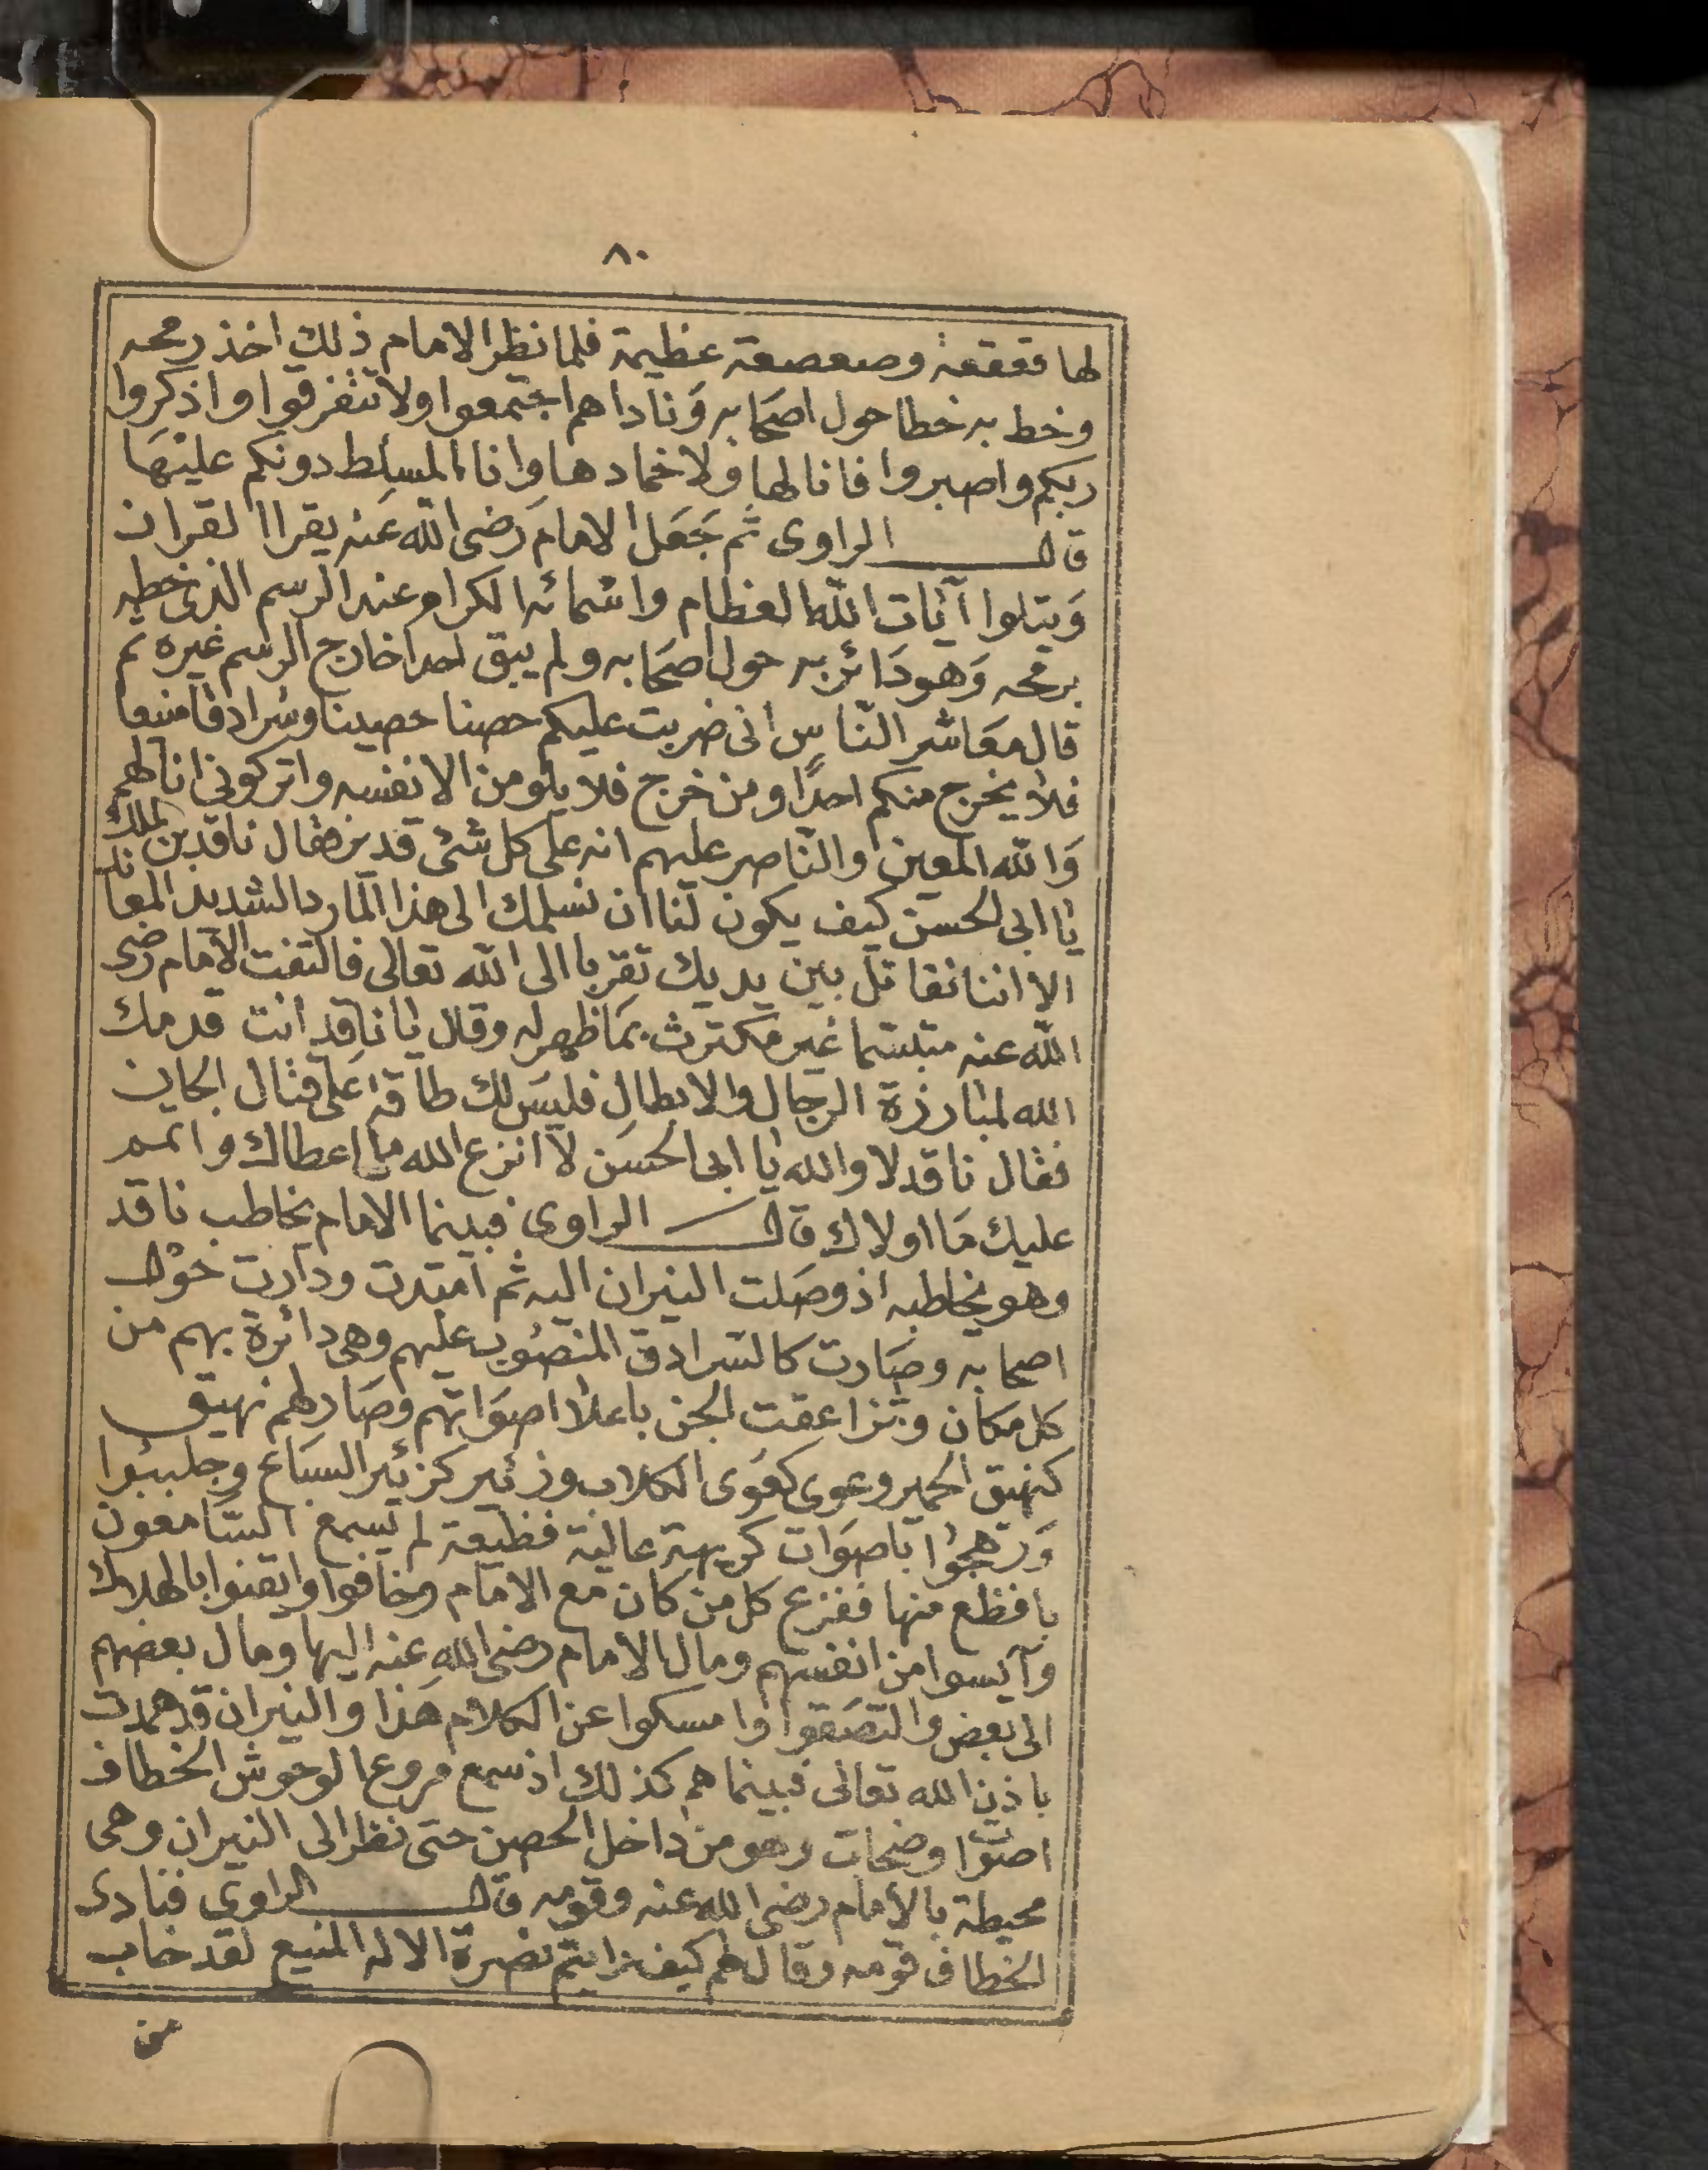 ٨٠
لها قعقعة وصعصعة عظيمة فلما نظر الامام ذلك اخذ رمحه
وخط به خطا حول اصحابه ونادا هم اجتمعوا ولا تتفرقوا واذكروا
ربكم واصبروا فانا لها ولا خمادها وانا المسلط دونكم عليها
قال الراوى ثم جعل الامام رضى الله عنه يقرا القران
ويتلوا آيات الله العظام واسمائه الكرام عند الرسم الذى خطه
برمحه وهو دائر به حول اصحابه ولم يبق احدا خارج الرسم غيره ثم
قال معاشر الناس انى ضربت عليكم حصنا حصينا وسرادقا منيعا
فلا يخرج منكم احدًا ومن خرج فلا يلومن الا نفسه واتركونى انا لهم
والله المعين والناصر عليهم انه على كل شئ قدير فقال ناقد بن الملك
يا ابى الحسن كيف يكون لنا ان نسلمك الى هذا المارد الشديد المعاند
الا اننا نقاتل بين يديك تقربا الى الله تعالى فالتفت الامام رضى
الله عنه متبسما غير مكترث بما ظهر له وقال يا ناقد انت قدمك
الله لمبارزة الرجال والابطال فليس لك طاقة على قتال الجان
فقال ناقد لا والله يا ابى الحسن لا انزع الله ما اعطاك واتمم
عليك ما اولاك قال الراوى فبينما الامام يخاطب ناقد
وهو يخاطبه اذ وصلت النيران اليه ثم امتدت ودارت حول
اصحابه وصارت كالسرادق المنصوب عليهم وهى دائرة بهم من
كل مكان وتزاعقت الجن باعلا اصواتهم وصار لهم نهيق
كنهيق الحمير وعوى كعوى الكلاب وزئير كزئير السباع وجلببوا
ورهجوا باصوات كريهة عالية فظيعة لم يسمع السامعون
بافظع منها ففزع كل من كان مع الامام وخافوا وايقنوا بالهلاك
وآيسوا من انفسهم ومال الامام رضى الله عنه اليها ومال بعضهم
الى بعض والتصقوا وامسكوا عن الكلام هذا والنيران قد همدت
باذن الله تعالى فبينما هم كذلك اذ سمع مروع الوحوش الخطاف
اصوا وضجات وهو من داخل الحصن حتى نظر الى النيران وهى
محيطة بالامام رضى الله عنه وقومه قال الراوى فنادى
الخطاف قومه وقال لهم كيف رايتم نصرة الاله المنيع لقد خاب
من